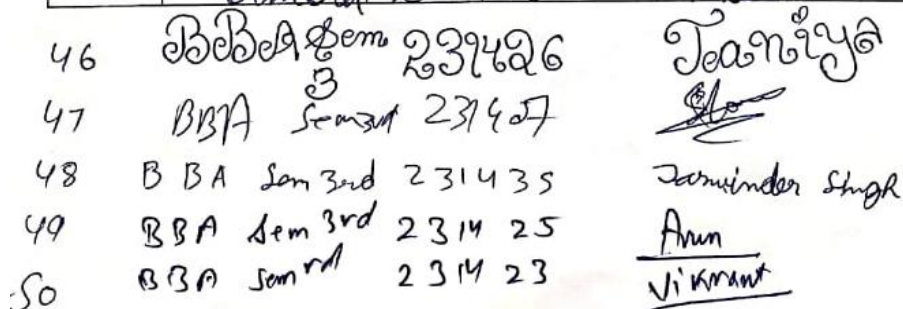 46 BBA Sem 3 231426 Teaniya
47 BBA Sem 3rd 231407
48 BBA Sem 3rd 231435 Jaswinder Singh
49 BBA Sem 3rd 231425 Arun
50 BBA Sem rd 231423 Vikrant